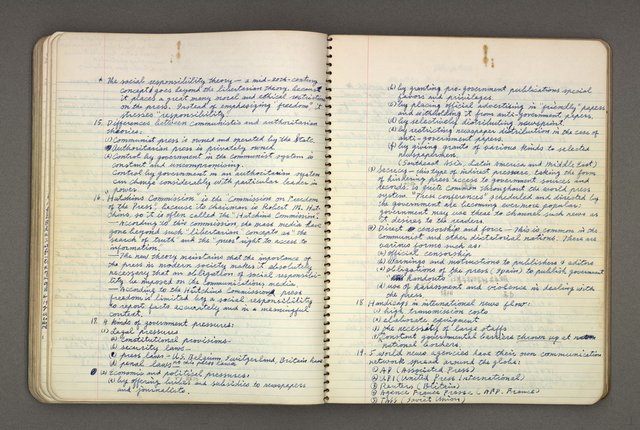 * The social responsibility theory — a mid-20th-century
concept goes beyond the libertarian theory, because
it places a great many moral and ethical restrictions
on the press. Instead of emphasizing "freedom" it
stresses "responsibility."
15. Differences between Communistic and authoritarian
theories:
1) Communist press is owned and operated by the State.
Authoritarian press is privately owned.
2) Control by government in the communist system is
constant and uncompromising.
Control by government in an authoritarian system
can change considerably with particular leader in
power.
16. Hutchins Commission is the Commission on Freedom
of the Press, because its chairman is Robert M. Hut-
chins, so it is often called the "Hutchins Commission".
— According to this commission, the mass media have
gone beyond such "libertarian" concepts as "the
search of truth" and the "press' right to access to
information."
— The new theory maintains that the importance of
the press in modern society makes it absolutely
necessary that an obligation of social responsibili-
ty be imposed on the communications media.
— According to the Hutchins Commission, press
freedom is limited by a social responsibility
to report facts accurately and in a meaningful
context.
4 kinds of government pressures:
1) Legal pressures
a) Constitutional provisions
b) security laws
c) press laws — U.S. Belgium, Switzerland, Britain have
no press laws
d) penal laws
2) Economic and political pressures:
a) by offering bribes and subsidies to newspapers
and journalists.
b) by granting pro-government publications special
favors and privileges.
c) by placing official advertising in "friendly" papers
and withholding it from anti-government papers.
d) by selectively distributing newsprint.
e) by restricting newspaper distribution in the case of
anti-government papers.
f) by giving grants of various kinds to selected
newspapermen.
(Southeast Asia, Latin America and Middle East)
3) Secrecy — this type of indirect pressure, taking the form
of hindering press access to government sources and
records, is quite common throughout the world press
system. "Press conferences" scheduled and directed by
the government are becoming ever more popular.
government may use these to channel such news as
it desires to the readers.
4) Direct censorship and force — This is common in the
Communist and other dictatorial nations. There are
various forms such as:
a) official censorship
b) Warnings and instructions to publishers & editors
c) obligations of the press (Spain) to publish government
handouts
d) use of harassment and violence in dealing with
the press.
18. Handicaps in international news flow:
1) high transmission costs
2) elaborate equipment
3) the necessity of large staffs
4) Constant governmental barriers thrown up at
national borders.
19. 5 world news agencies have their own communication
network spread around the globe:
1) AP (Associated Press)
2) UPI (United Press International)
3) Reuters (Britain)
4) Agence France Presse (AFP - France)
5) TASS (Soviet Union)